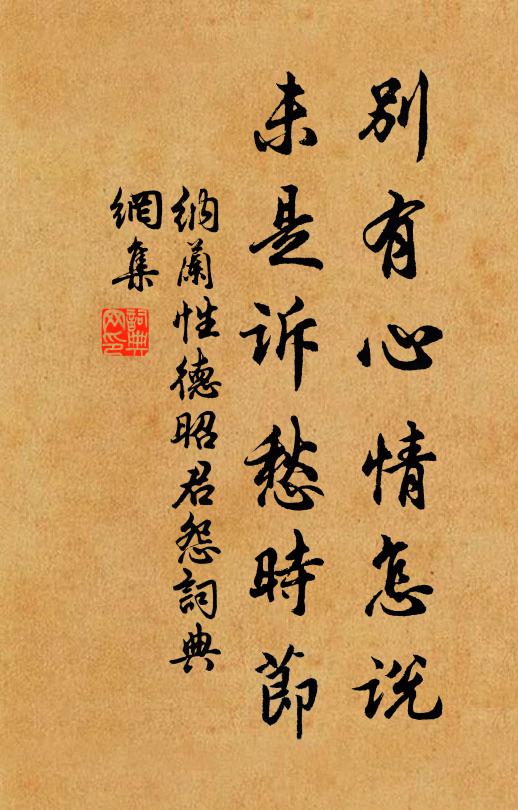 别有心情怎说
未是诉愁時節
納蘭性德昭君怨詞典
網集
詞典
网印